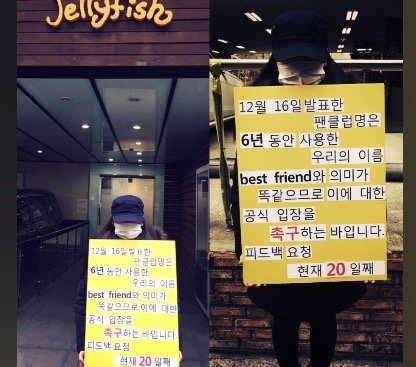 Jellyfish
12월 16일발표한
팬클럽명은
6년 동안 사용한
우리의 이름
best friend와 의미가
똑같으므로 이에 대한
공식 입장을
촉구하는 바입니다.
피드백 요청
현재 20 일째
12월 16일발표한
팬클럽명은
6년 동안 사용한
우리의 이름
best friend와 의미가
똑같으므로 이에 대한
공식 입장을
촉구하는 바입니다.
피드백 요청
현재 20 일째